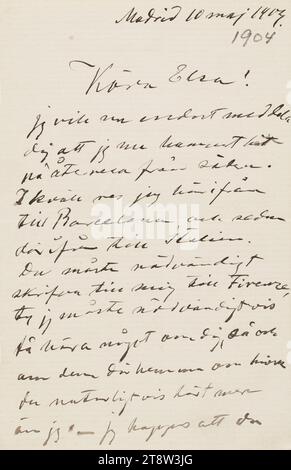 Madrid 10 maj 1904.
1904
Kära Elsa!
jag vill nu endast meddela
dig att jag nu hunnit
på återresa från
I kväll reser jag härifrån
till Barcelona och sedan
därifrån till Italien.
Du måste nödvändigt
skrifva till mig till Firenze,
ty jag måste nödvändigtvis
få höra något om dig, så ock
om dem där hemma om hvilka
du naturligtvis hört mer
än jag — Jag hoppas att du
alamy
Image ID: 2T8W3JG
www.alamy.com